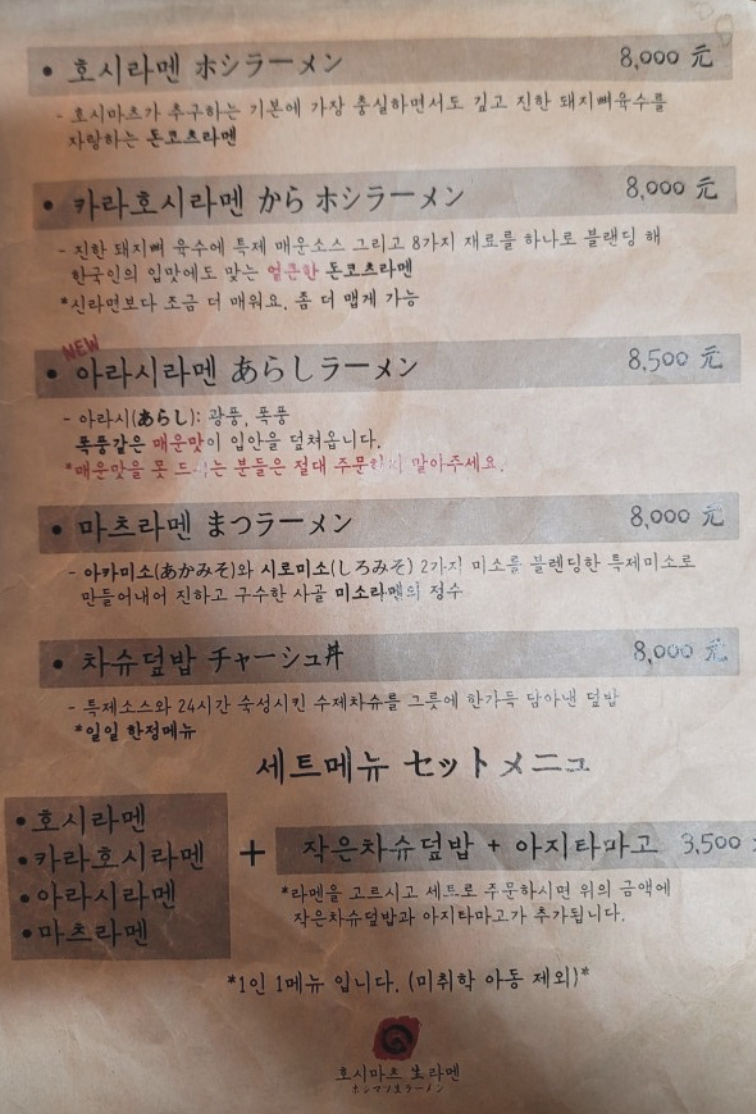 • 호시라멘 ホシラーメン 8,000 元
- 호시마츠가 추구하는 기본에 가장 충실하면서도 깊고 진한 돼지뼈육수를
자랑하는 돈코츠라멘
• 카라호시라멘 から ホシラーメン 8,000 元
- 진한 돼지뼈 육수에 특제 매운소스 그리고 8가지 재료를 하나로 블랜딩 해
한국인의 입맛에도 맞는 얼큰한 돈코츠라멘
*신라면보다 조금 더 매워요, 좀 더 맵게 가능
NEW
• 아라시라멘 あらしラーメン 8,500 元
- 아라시(あらし): 광풍, 폭풍
폭풍같은 매운맛이 입안을 덮쳐옵니다.
*매운맛을 못 드시는 분들은 절대 주문하지 말아주세요.
• 마츠라멘 まつラーメン 8,000 元
- 아카미소(あかみそ)와 시로미소(しろみそ) 2가지 미소를 블렌딩한 특제미소로
만들어내어 진하고 구수한 사골 미소라멘의 정수
• 차슈덮밥 チャーシュ丼 8,000 元
- 특제소스와 24시간 숙성시킨 수제차슈를 그릇에 한가득 담아낸 덮밥
*일일 한정메뉴
세트메뉴 セット メニュ
• 호시라멘
• 카라호시라멘
• 아라시라멘
• 마츠라멘
+ 작은차슈덮밥 + 아지타마고 3,500
*라멘을 고르시고 세트로 주문하시면 위의 금액에
작은차슈덮밥과 아지타마고가 추가됩니다.
*1인 1메뉴 입니다. (미취학 아동 제외)*
호시마츠 生라멘
ホシマツ生ラーメン